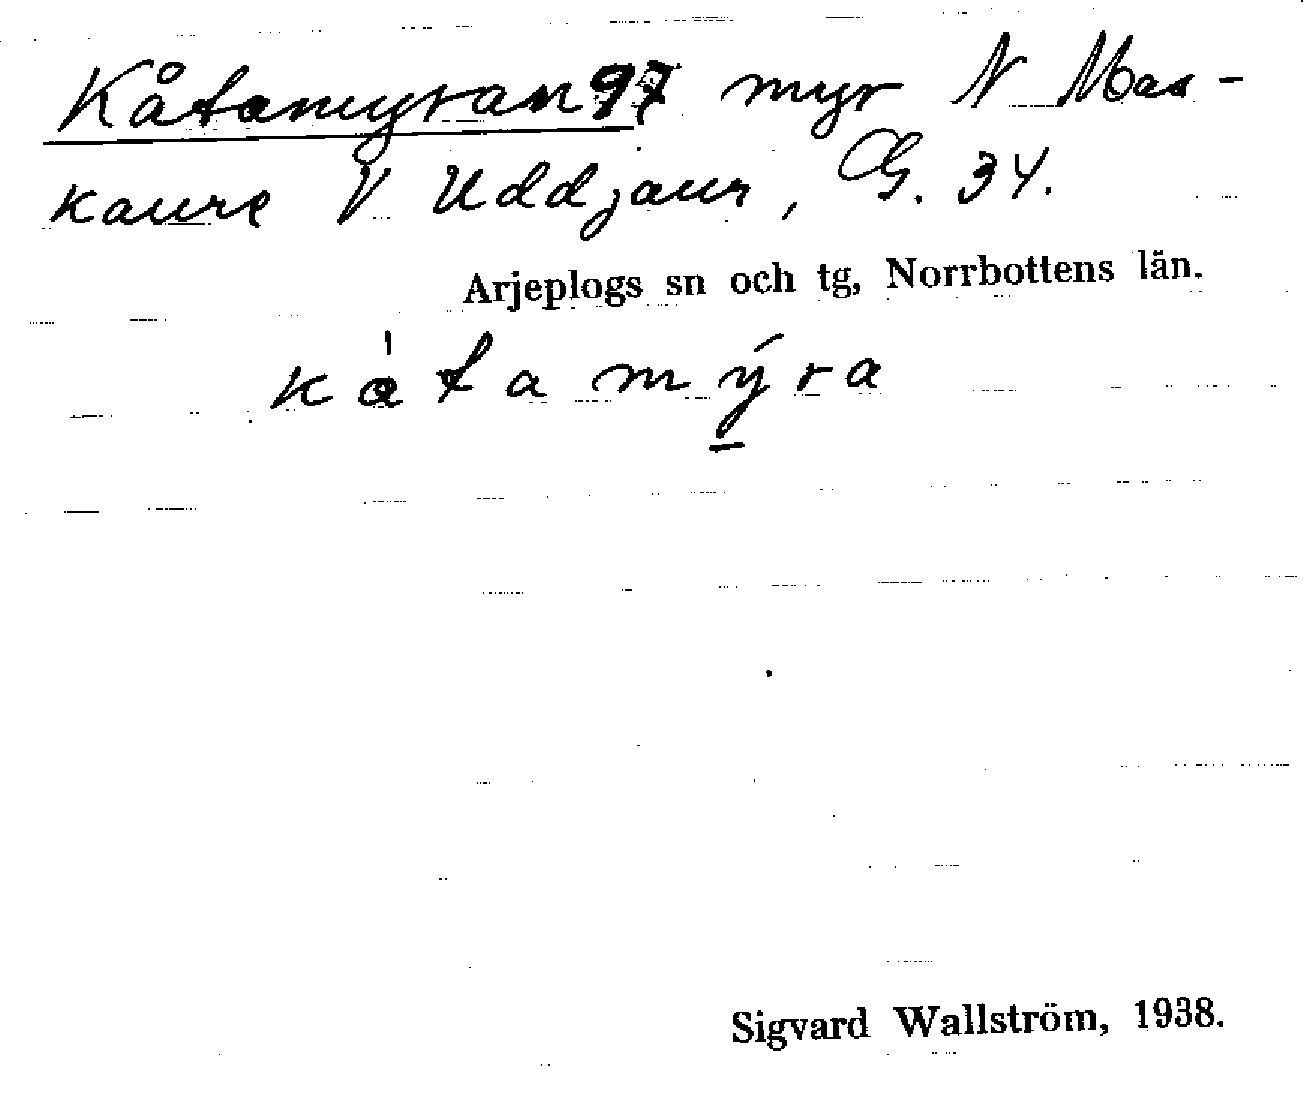 Kåtamyran 97 myr N Mas-
kaure V Uddjaur, G. 34.
Arjeplogs sn och tg, Norrbottens län.
kå̀tamýra
Sigvard Wallström, 1938.